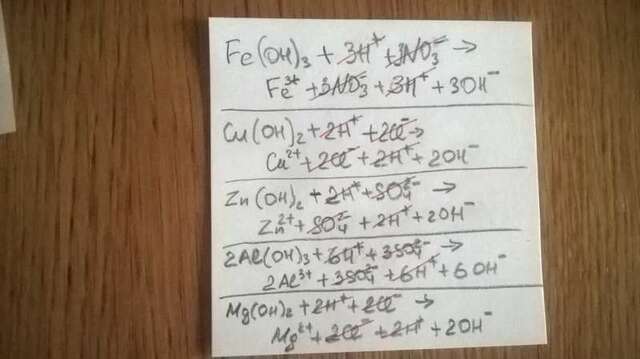 Fe(OH)₃ + 3H⁺ + 3NO₃⁻ →
Fe³⁺ + 3NO₃⁻ + 3H⁺ + 3OH⁻
Cu(OH)₂ + 2H⁺ + 2Cl⁻ →
Cu²⁺ + 2Cl⁻ + 2H⁺ + 2OH⁻
Zn(OH)₂ + 2H⁺ + SO₄²⁻ →
Zn²⁺ + SO₄²⁻ + 2H⁺ + 2OH⁻
2Al(OH)₃ + 6H⁺ + 3SO₄²⁻ →
2Al³⁺ + 3SO₄²⁻ + 6H⁺ + 6OH⁻
Mg(OH)₂ + 2H⁺ + 2Cl⁻ →
Mg²⁺ + 2Cl⁻ + 2H⁺ + 2OH⁻